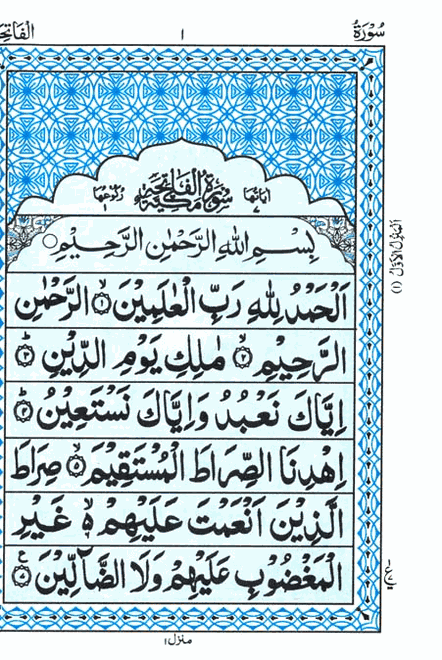 سُوْرَةُ ١ الْفَاتِحَ
اٰيَاتُهَا ٧ سُوْرَةُ الْفَاتِحَةِ مَكِّيَّةٌ رُكُوْعُهَا ١
بِسْمِ اللهِ الرَّحْمٰنِ الرَّحِيْمِ
اَلْحَمْدُ لِلّٰهِ رَبِّ الْعٰلَمِيْنَ ۙ﴿١﴾ الرَّحْمٰنِ
الرَّحِيْمِ ۙ﴿٢﴾ مٰلِكِ يَوْمِ الدِّيْنِ ؕ﴿٣﴾
اِيَّاكَ نَعْبُدُ وَاِيَّاكَ نَسْتَعِيْنُ ؕ﴿٤﴾
اِهْدِنَا الصِّرَاطَ الْمُسْتَقِيْمَ ۙ﴿٥﴾ صِرَاطَ
الَّذِيْنَ اَنْعَمْتَ عَلَيْهِمْ ۙ۬ غَيْرِ
الْمَغْضُوْبِ عَلَيْهِمْ وَلَا الضَّآلِّيْنَ
منزل ١